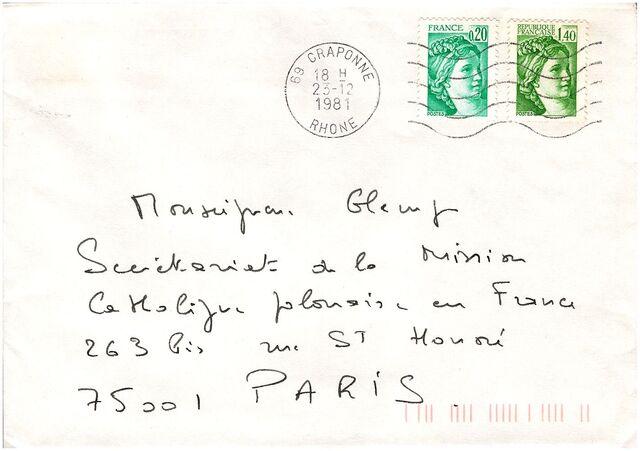 69 CRAPONNE
18 H
23-12
1981
RHONE
FRANCE
0,20
POSTES
REPUBLIQUE
FRANÇAISE
1,40
POSTES
Monseigneur Glemp
Secrétariat de la Mission
Catholique polonaise en France
263 bis rue ST Honoré
75001 PARIS.